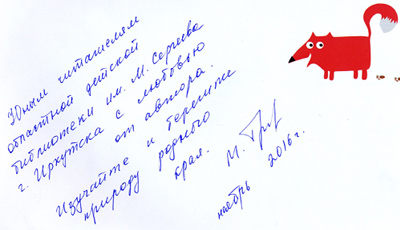 Юным читателям
областной детской
библиотеки им. М. Сергеева
г. Иркутска с любовью
от автора.
Изучайте и берегите
природу родного
края.
М.
ноябрь 2016г.